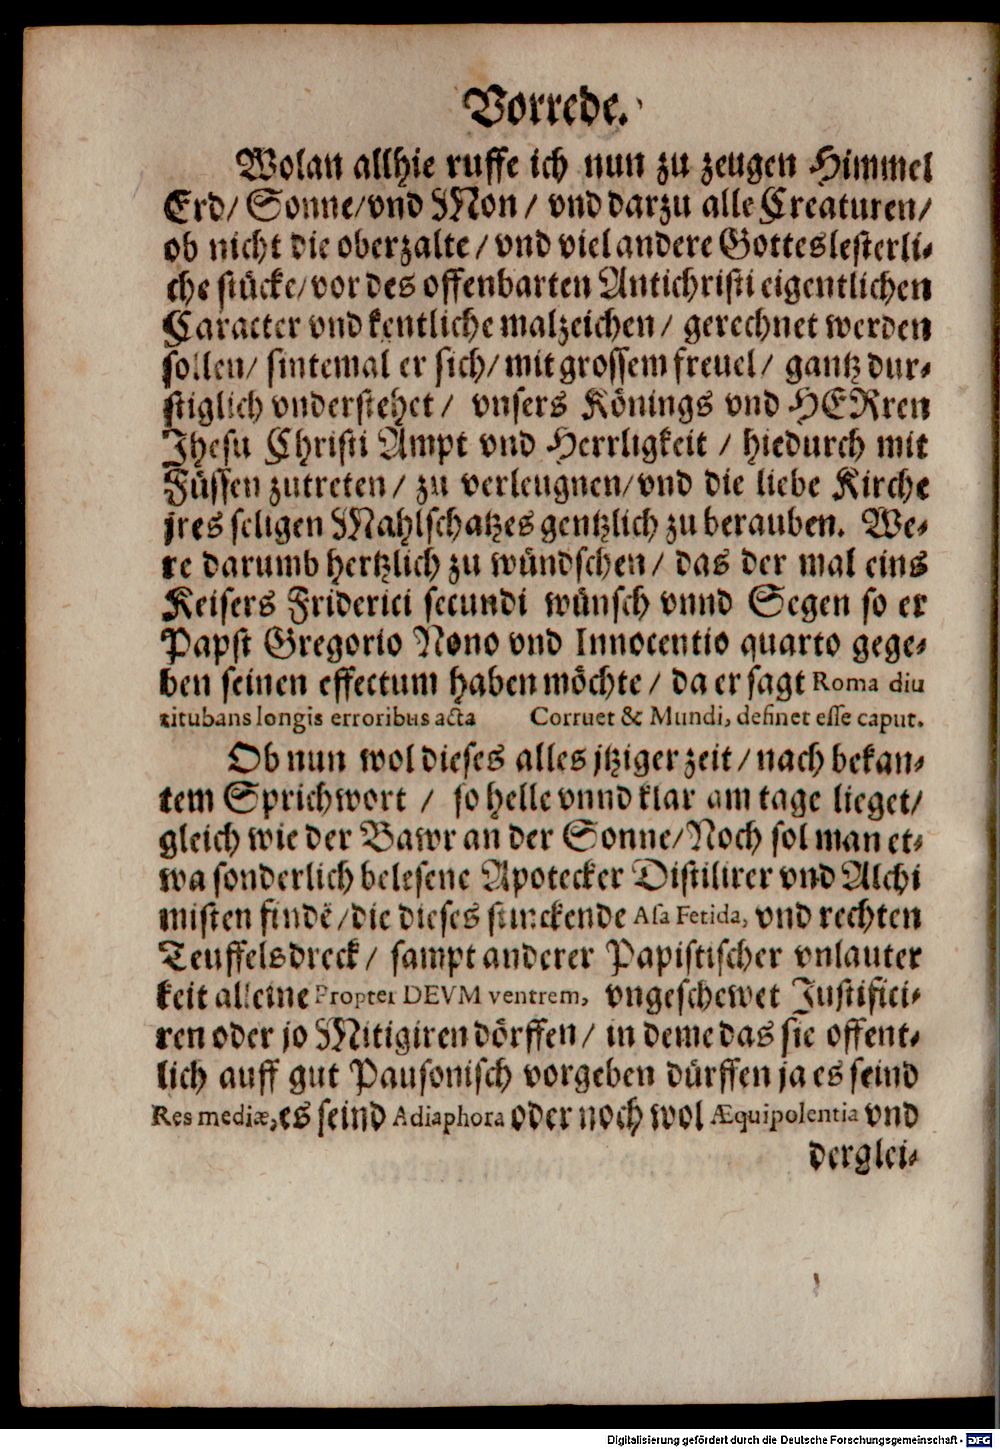 Vorrede.
Wolan allhie ruffe ich nun zu zeugen Himmel
Erd/ Sonne/vnd Mon / vnd darzu alle Creaturen/
ob nicht die oberzalte / vnd viel andere Gotteslesterli-
che stücke/vor des offenbarten Antichristi eigentlichen
Caracter vnd kentliche malzeichen / gerechnet werden
sollen/ sintemal er sich/ mit grossem freuel/ gantz dur-
stiglich vnderstehet / vnsers Könings vnd HERren
Jhesu Christi Ampt vnd Herrligkeit / hiedurch mit
Füssen zutreten / zu verleugnen/vnd die liebe Kirche
jres seligen Mahlschatzes gentzlich zu berauben. We-
re darumb hertzlich zu wündschen / das der mal eins
Keisers Friderici secundi wünsch vnnd Segen so er
Papst Gregorio Nono vnd Innocentio quarto gege-
ben seinen effectum haben möchte / da er sagt Roma diu
titubans longis erroribus acta Corruet & Mundi, definet esse caput.
Ob nun wol dieses alles jtziger zeit / nach bekan-
tem Sprichwort / so helle vnnd klar am tage lieget/
gleich wie der Bawr an der Sonne/Noch sol man et-
wa sonderlich belesene Apotecker Distilirer vnd Alchi
misten findē /die dieses stinckende Asa Fetida, vnd rechten
Teuffelsdreck / sampt anderer Papistischer vnlauter
keit alleine Propter DEVM ventrem, vngeschewet Justifici-
ren oder jo Mitigiren dörffen / in deme das sie offent-
lich auff gut Pausonisch vorgeben dürffen ja es seind
Res mediæ, es seind Adiaphora oder noch wol Æquipolentia vnd
derglei-
Digitalisierung gefördert durch die Deutsche Forschungsgemeinschaft - DFG